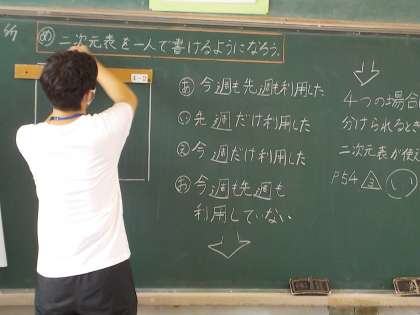 め 二次元表を一人で書けるようになろう。
4-2
あ 今週も先週も利用した
い 先週だけ利用した
え 今週だけ利用した
お 今週も先週も
利用していない
4つの場合
分けられるとき
二次元表が使え
P54 3 い